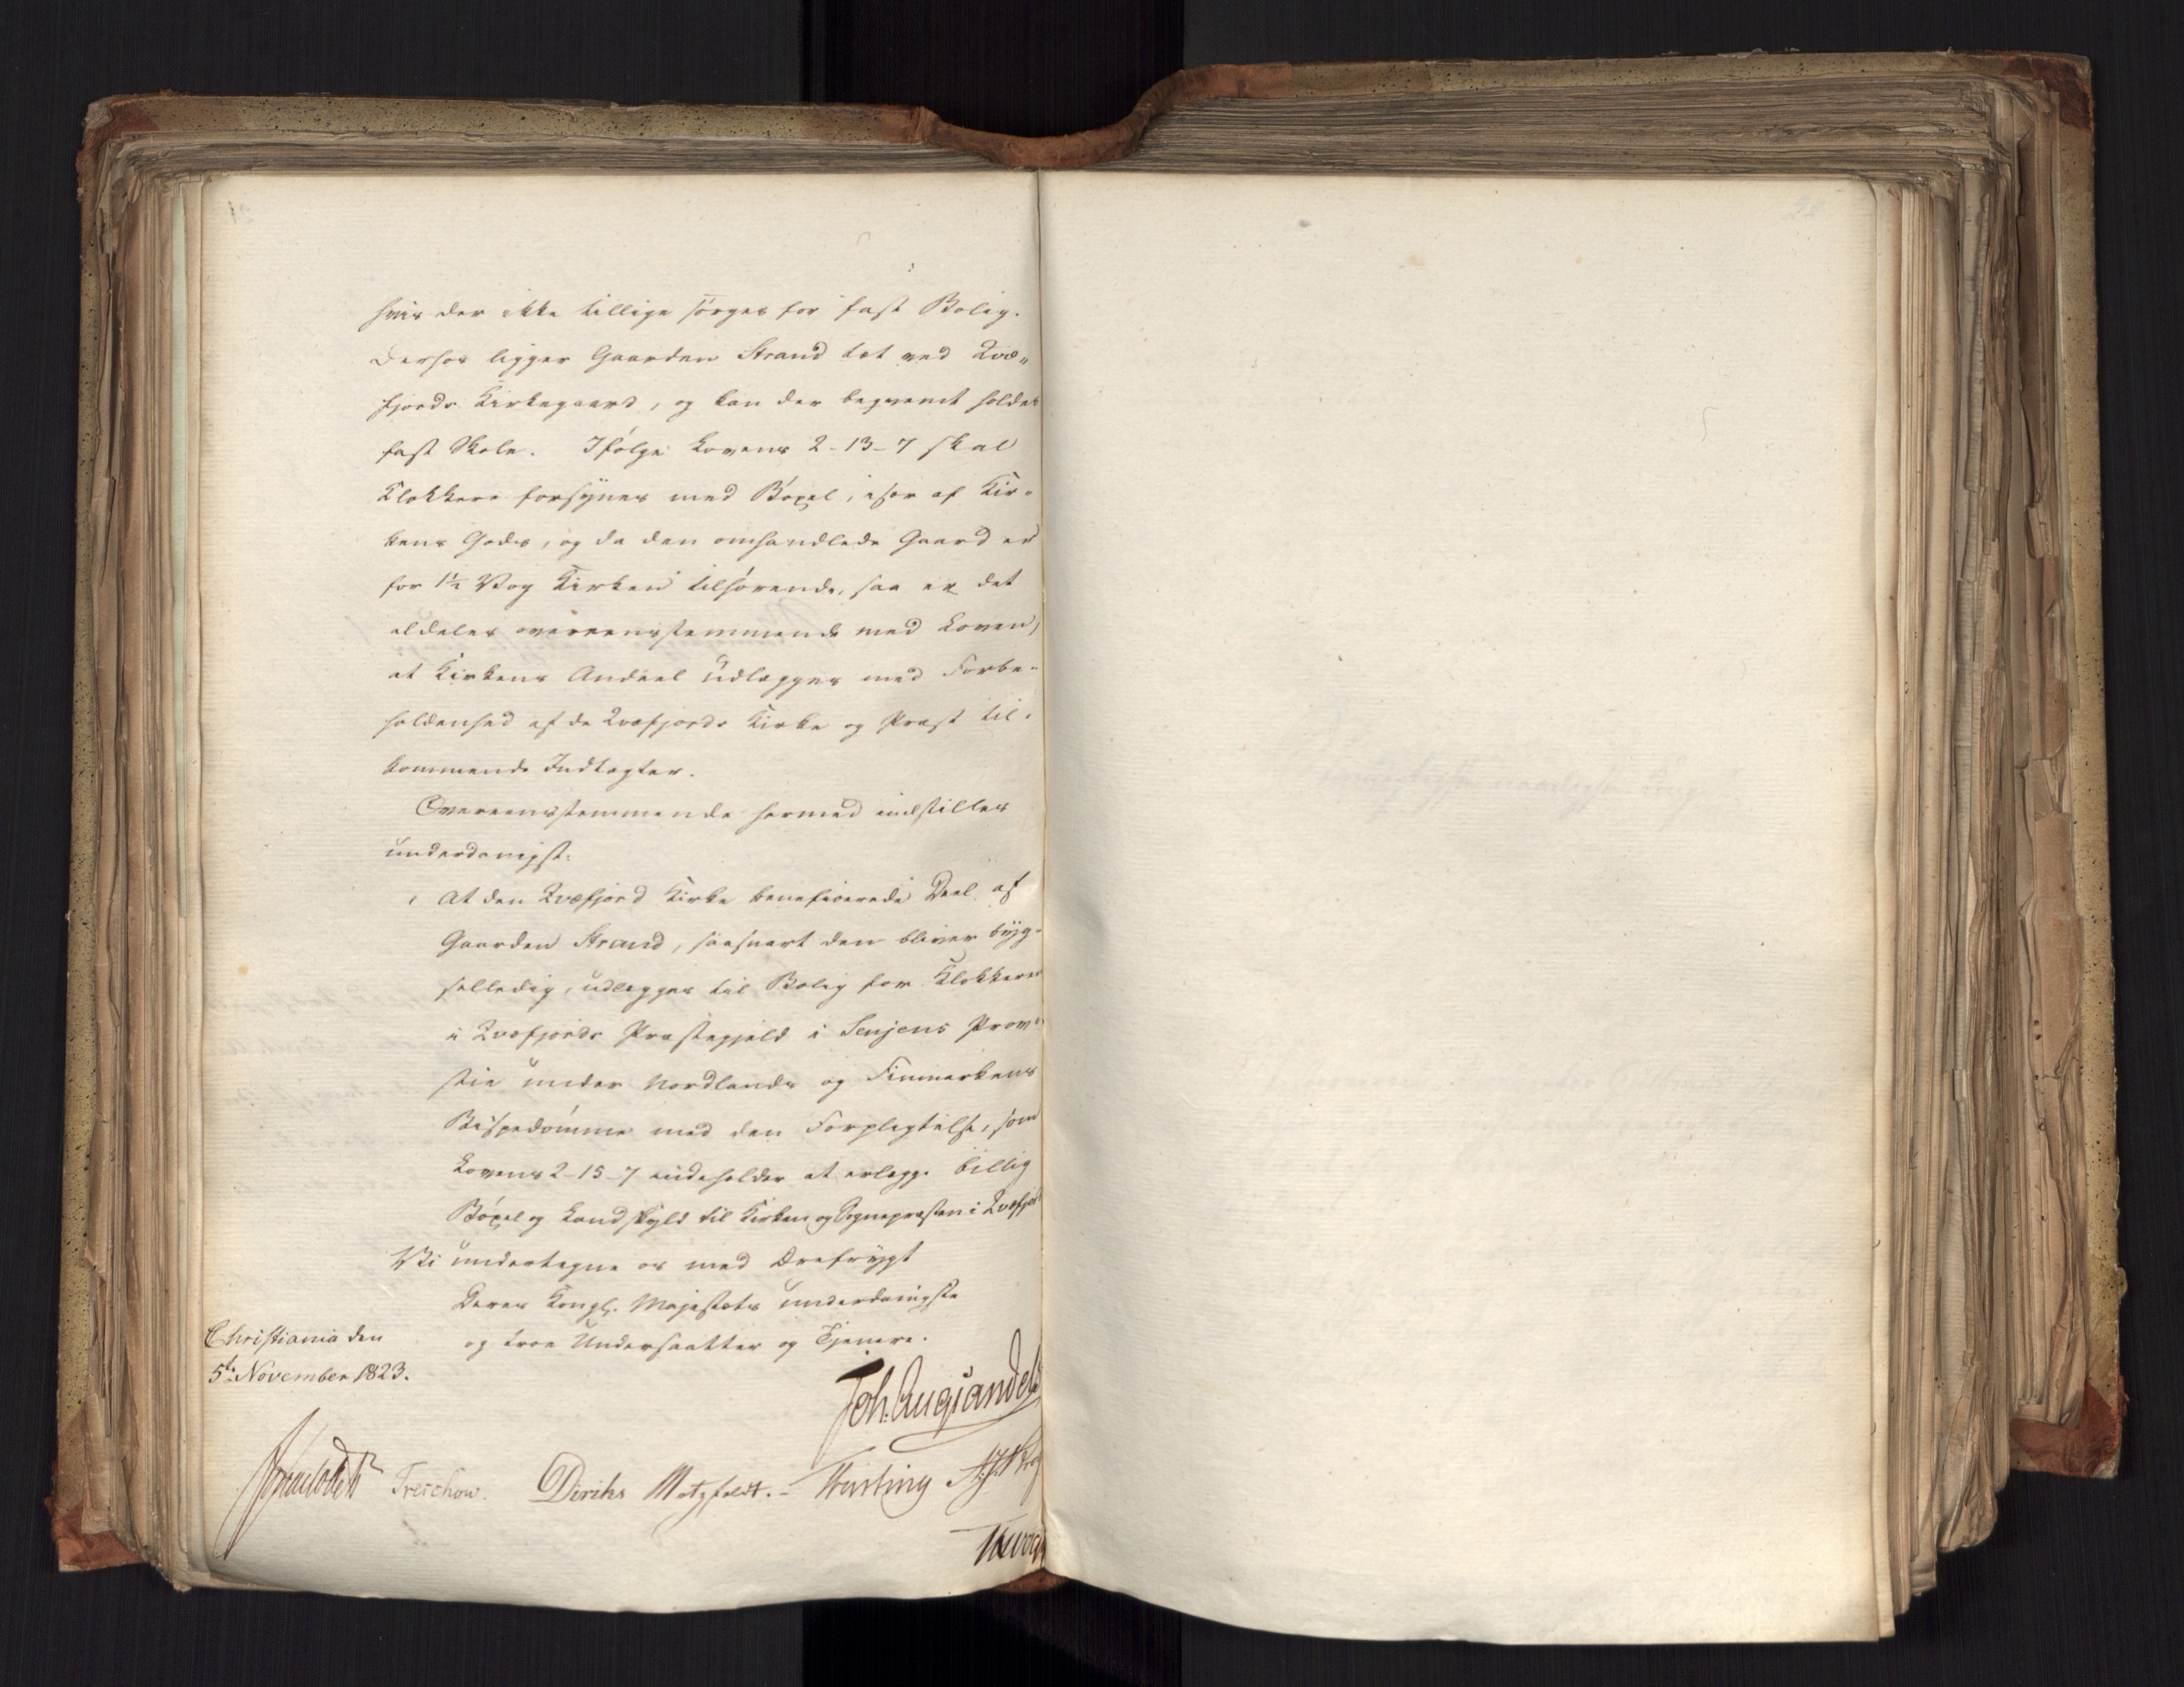 hvis der ikke tillige sörges for fast Bolig.
Derhos ligger Gaarden Strand tæt ved Qvæ„
fjords Kirkegaard, og kan der beqvemt holdes
fast Skole. Ifölge Lovens 2-13-7 skal
Klokkere forsynes med Böxel, især af Kir-
kens Gods, og da den omhandlede Gaard er
for 1½ Vog Kirken tilhörende, saa er det
aldeles overeensstemmende med Loven,
at Kirkens Andeel udlægges med Forbe-
holdenhed af de Qvæfjords Kirke og Præst til-
kommende Indtægter.
Overeensstemmende hermed indstilles
underdanigst:
At den Qvæfjord Kirke beneficerede Deel af
Gaarden Strand, saasnart den bliver byg-
selledig, udlægges til Bolig for Klokkeren
i Qvæfjords Præstegjeld i Senjens Prov-
stie under Nordlands og Finmarkens
Bispedömme med den Forpligtelse, som
Lovens 2-15-7 indeholder at erlægge billig
Böxel og Landskyld til Kirken og Sognepræsten i Qvæfjord
Vi undertegne os med Ærefrygt
Deres Kongl. Majestæts underdanigste
og troe Undersaatter og Tjenere.
Christiania den
5te November 1823.
Joh. Aug. Sandels
Treschow. Diriks Motzfeldt.